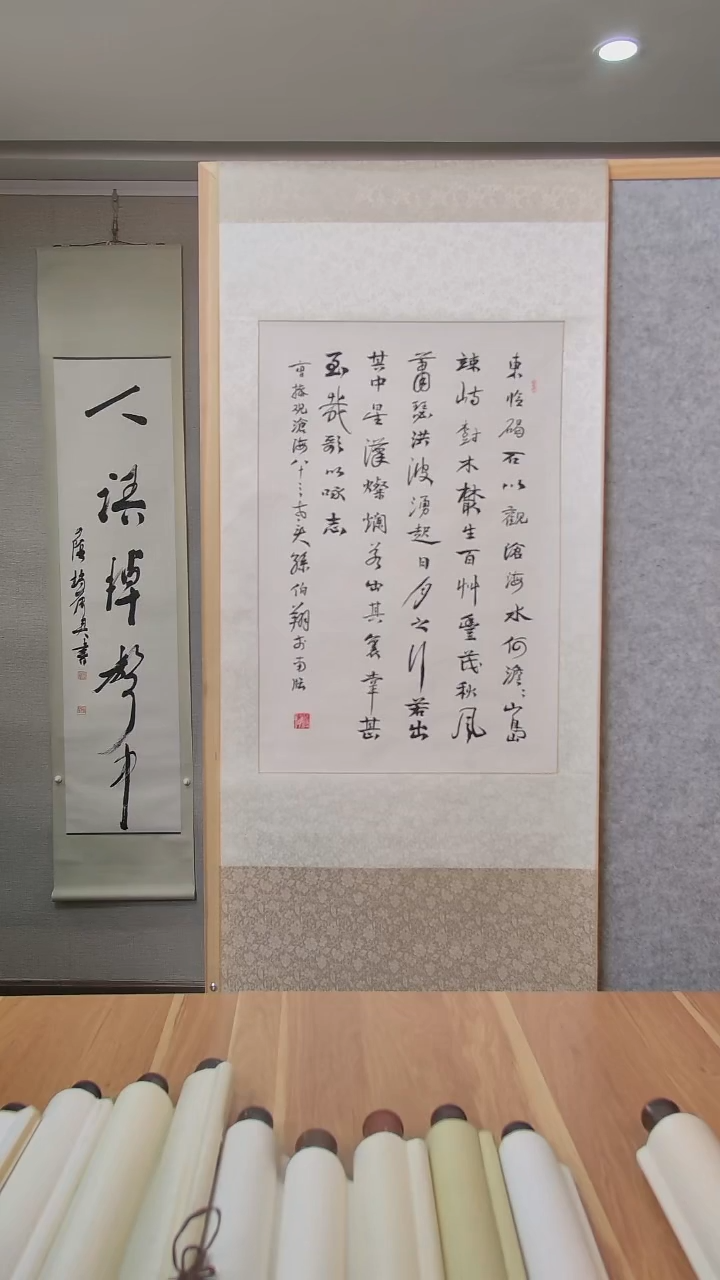 東临碣石以觀滄海水何澹澹山島
竦峙樹木叢生百艸豐茂秋風
蕭瑟洪波湧起日月之行若出
其中星漢燦爛若出其裏幸甚
至哉歌以咏志
曹操观滄海八十三老叟孫伯翔於
人語棹聲中
書